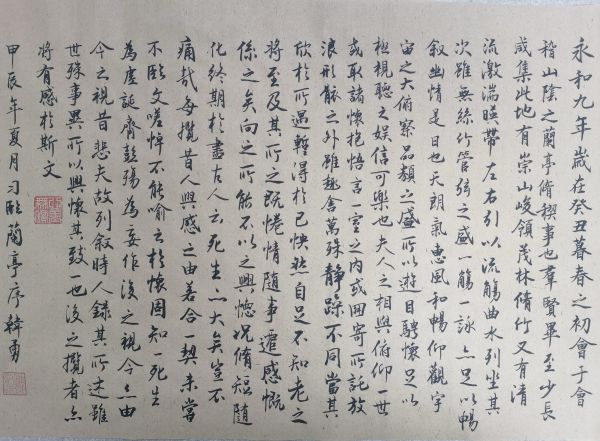 永和九年歲在癸丑暮春之初會于會
稽山陰之蘭亭脩稧事也羣賢畢至少長
咸集此地有崇山峻領茂林脩竹又有清
流激湍暎帶左右引以流觴曲水列坐其
次雖無絲竹管弦之盛一觴一詠亦足以暢
敘幽情是日也天朗氣惠風和暢仰觀宇
宙之大俯察品類之盛所以遊目騁懷足以
極視聽之娛信可樂也夫人之相與俯仰一世
或取諸懷抱悟言一室之内或因寄所託放
浪形骸之外雖趣舍萬殊静躁不同當其
欣於所遇輙得於己怏然自足不知老之
將至及其所之既惓情隨事遷感慨
係之矣向之所能不以之興懷況脩短隨
化終期於盡古人云死生亦大矣豈不
痛哉每攬昔人興感之由若合一契未嘗
不臨文嗟悼不能喻之於懷固知一死生
為虛誕齊彭殤為妄作後之視今亦由
今之視昔悲夫故列敘時人錄其所述雖
世殊事異所以興懷其致一也後之攬者亦
將有感於斯文
甲辰年夏月習臨蘭亭序韓勇